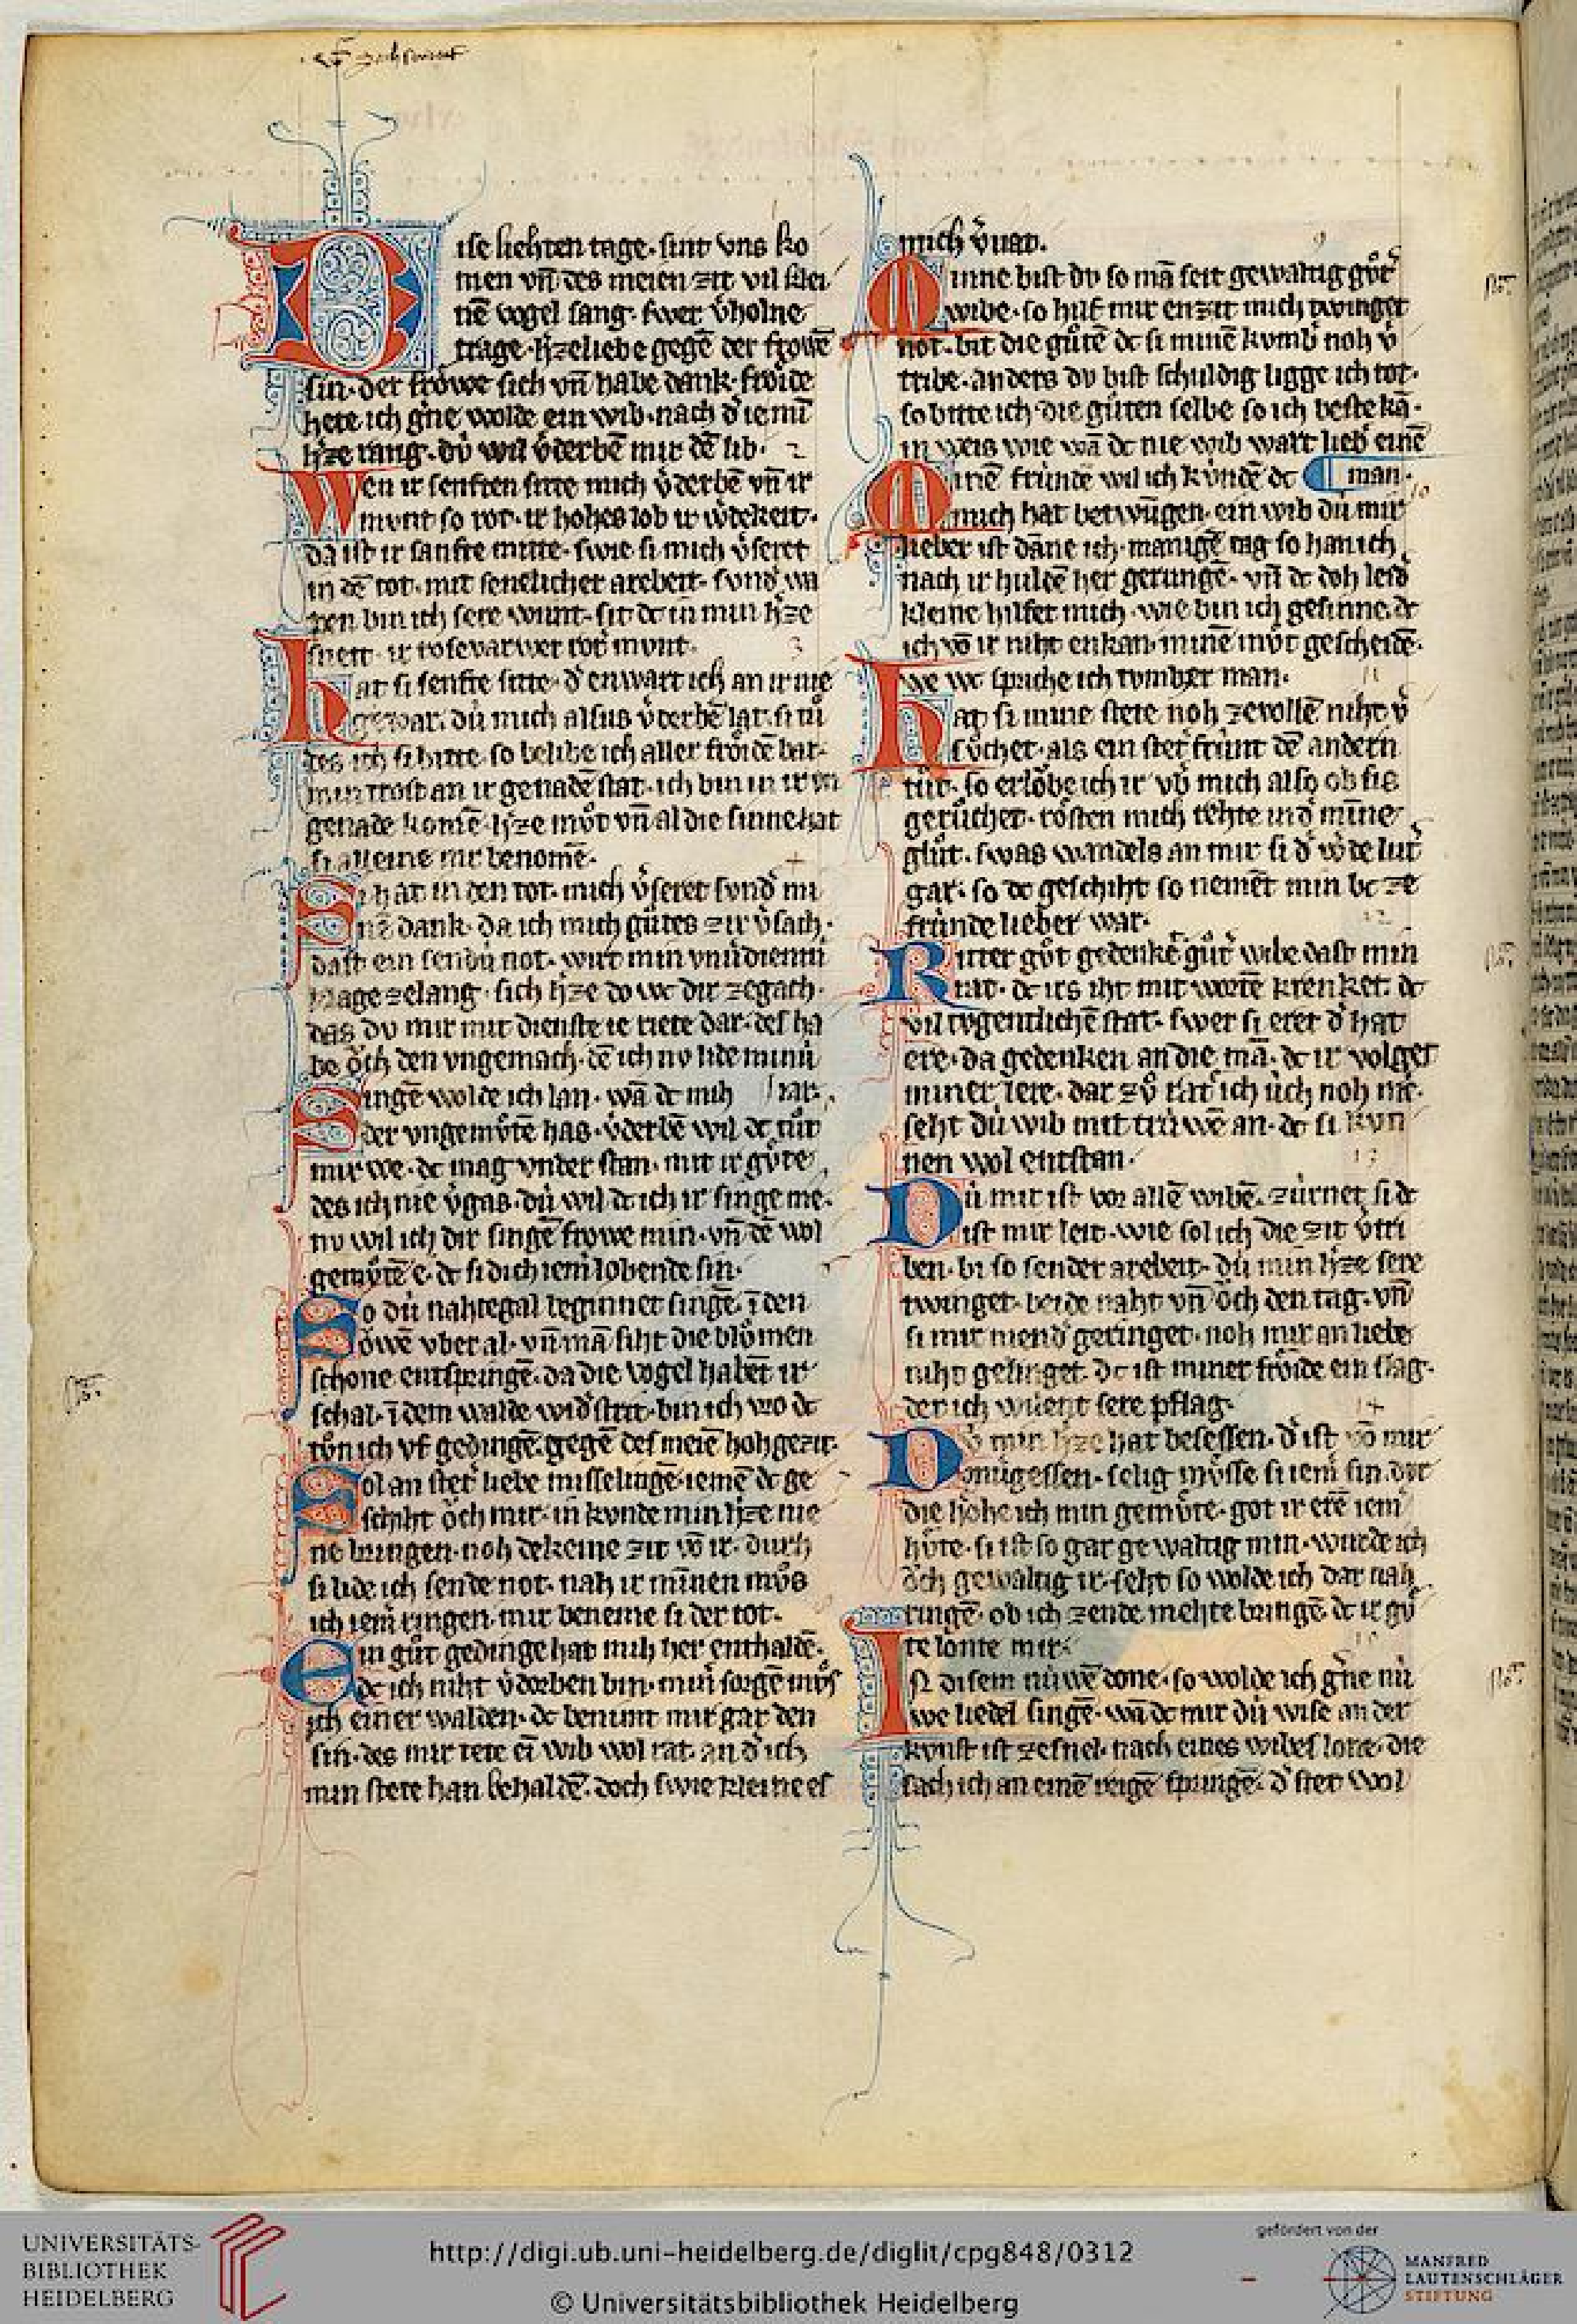 Dise liehten tage· sint vns ko
men vn̄ des meien zit vil klei
nē vogel sang· swer v̄holne
trage· h̄zeliebe gegē der frowē
sin· der frŏwe sich vn̄ habe dank· frŏide
hete ich g̾ne wolde ein wib· nach d̾ ie mī
h̄ze rang· dv̍ wil v̾derbē mir dē lib·
Wen ir senften sitte mich v̾derbē vn̄ ir
mvnt so rot· ir hohes lob ir w̾dekeit·
da ist ir sanfte mitte· swie si mich v̾seret
in dē tot· mit senelicher arebeit· svnd̾ wa
fen bin ich sere wunt· sit dc in min h̾ze
sneit· ir rosevarwer rot mvnt·
Hat si senfte sitte· d̾ enwart ich an ir nie
gewar· dú mich alsus v̾derbē lat· si tů
des ich si bitte· so belibe ich aller frŏidē bar·
min trost an ir genadē stat· ich bin in ir vn
genade komē· h̾ze mv̊t vn̄ al die sinne hat
si alleine mir benomē·
Si hat in den tot· mich v̾seret svnd̾ mi
nē dank· da ich mich gůtes zir v̾sach·
dast ein sendú not· wirt min vnúdientú
klage zelang· sich h̾ze do wc dir zegach·
das dv mir mit dienste ie riete dar· des ha
be ŏch den vngemach· dē ich nv lide minú
Singē wolde ich lan· wā dc mih iar·
der vngemv̊te has· v̾derbē wil dc tůt
mir we· dc mag vnder stan· mit ir gv̊te
des ich nie v̾gas· dú wil dc ich ir singe me·
nv wil ich dir singē frowe min· vn̄ dē wol
gemv̊tē e· dc si dich iem̾ lobende sin·
So dú nahtegal beginnet singē· ī den
ŏwē vber al· vn̄ mā siht die blůmen
schone entspringē· da die vogel habēt ir
schal· ī dem walde wid̾ strit· bin ich vro dc
tůn ich vf gedingē· gegē des meiē hohgezit·
Sol an stet̾ liebe misselingē· iemē dc ge
schiht ŏch mir· in kvnde min h̾ze nie
ne bringen· noh dekeine zit vō ir· durh
si lide ich sende not· nah ir minnen můs
ich iem̾ ringen· mir beneme si der tot·
Ein gůt gedinge hat mih her enthaldē·
dc ich niht v̾dorben bin· min̾ sorgē mv̊s
ich einer walden· dc benimt mir gar den
sin· des mir tete ei wib wol rat· an d̾ ich
min stete han behaldē· doch swie kleine es
mich v̾uat·
Minne bist dv so mā seit gewaltig gůt̾
wibe· so hilf mir enzit mich twinget
not· bit die gůtē dc si minē kvmb̾ noh v̾
tribe· anders dv bist schuldig ligge ich tot·
so bitte ich die gůten selbe so ich beste kā·
in weis wie wā dc nie wib wart lieb̾ einē
Minē frúndē wil ich kúndē dc man·
mich hat betwūgen· ein wib dú mir
lieber ist dāne ich· manigē tag so han ich
nach ir huldē her gerungē· vn̄ dc doh leid̾
kleine hilfet mich· wie bin ich gesinne· dc
ich vō ir niht enkan· minē mv̊t gescheidē·
we wc spriche ich tvmber man·
Hat si mine stete noh zevollē niht v̾
sv̊chet· als ein stet̾ frúnt dē andern
tůt· so erlŏbe ich ir vb̾ mich also ob sis
gerůchet· rŏsten mich rehte ind̾ minne
glůt· swas wandels an mir si d̾ w̾de lut̾
gar· so dc geschiht so nemēt min bc ze
frúnde lieber war·
Ritter gůt gedenkēt gůt̾ wibe dast min
rat· dc irs iht mit wortē krenket· dc
vil tvgentlichē stat· swer si eret d̾ hat
ere· da gedenken an die mā· dc ir volget
miner lere· dar zv̊ rat ich úch noh me·
seht dú wib mit trúwē an· dc si kvn
nen wol entstan·
Dú mir ist vor allē wibē· zúrnet si dc
ist mir leit· wie sol ich die zit v̾tri
ben· bi so sender arebeit· dú min h̾ze sere
twinget· beide naht vn̄ ŏch den tag· vn̄
si mir niend̾ geringet· noh mir an liebe
niht gelinget· dc ist miner frŏide ein slag·
der ich wilent sere pflag·
Dú min h̾ze hat besessen· d̾ ist vō mir
vnúgessen· selig mv̊sse si iem̾ sin· dur
die hŏhe ich min gemv̊te· got ir erē iem̾
hv̊te· si ist so gar gewaltig min· wurde ich
ŏch gewaltig ir· seht so wolde ich dar nah
ringē· ob ich zende mehte bringē· dc ir gv̊
te lonte mir·
IN disem núwē done· so wolde ich g̾ne nú
we liedel singē· wā dc mir dú wise an der
kvnst ist zesnel· nach eines wibes lone· die
sach ich an einē reigē springē· d̾ stet wol
UNIVERSITÄTS-
BIBLIOTHEK
HEIDELBERG
http://digi.ub.uni-heidelberg.de/diglit/cpg848/0312
© Universitätsbibliothek Heidelberg
gefördert von der
MANFRED
LAUTENSCHLÄGER
STIFTUNG